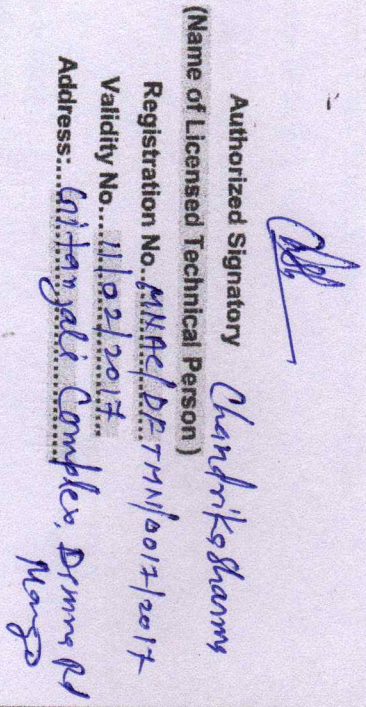 Authorized Signatory Chandrika Sharma
(Name of Licensed Technical Person)
Registration No..MNAC/DFTMN/0017/2017
Validity No....11/02/2017
Address:....Gitanjali Complex, Dimna Rd
Mango